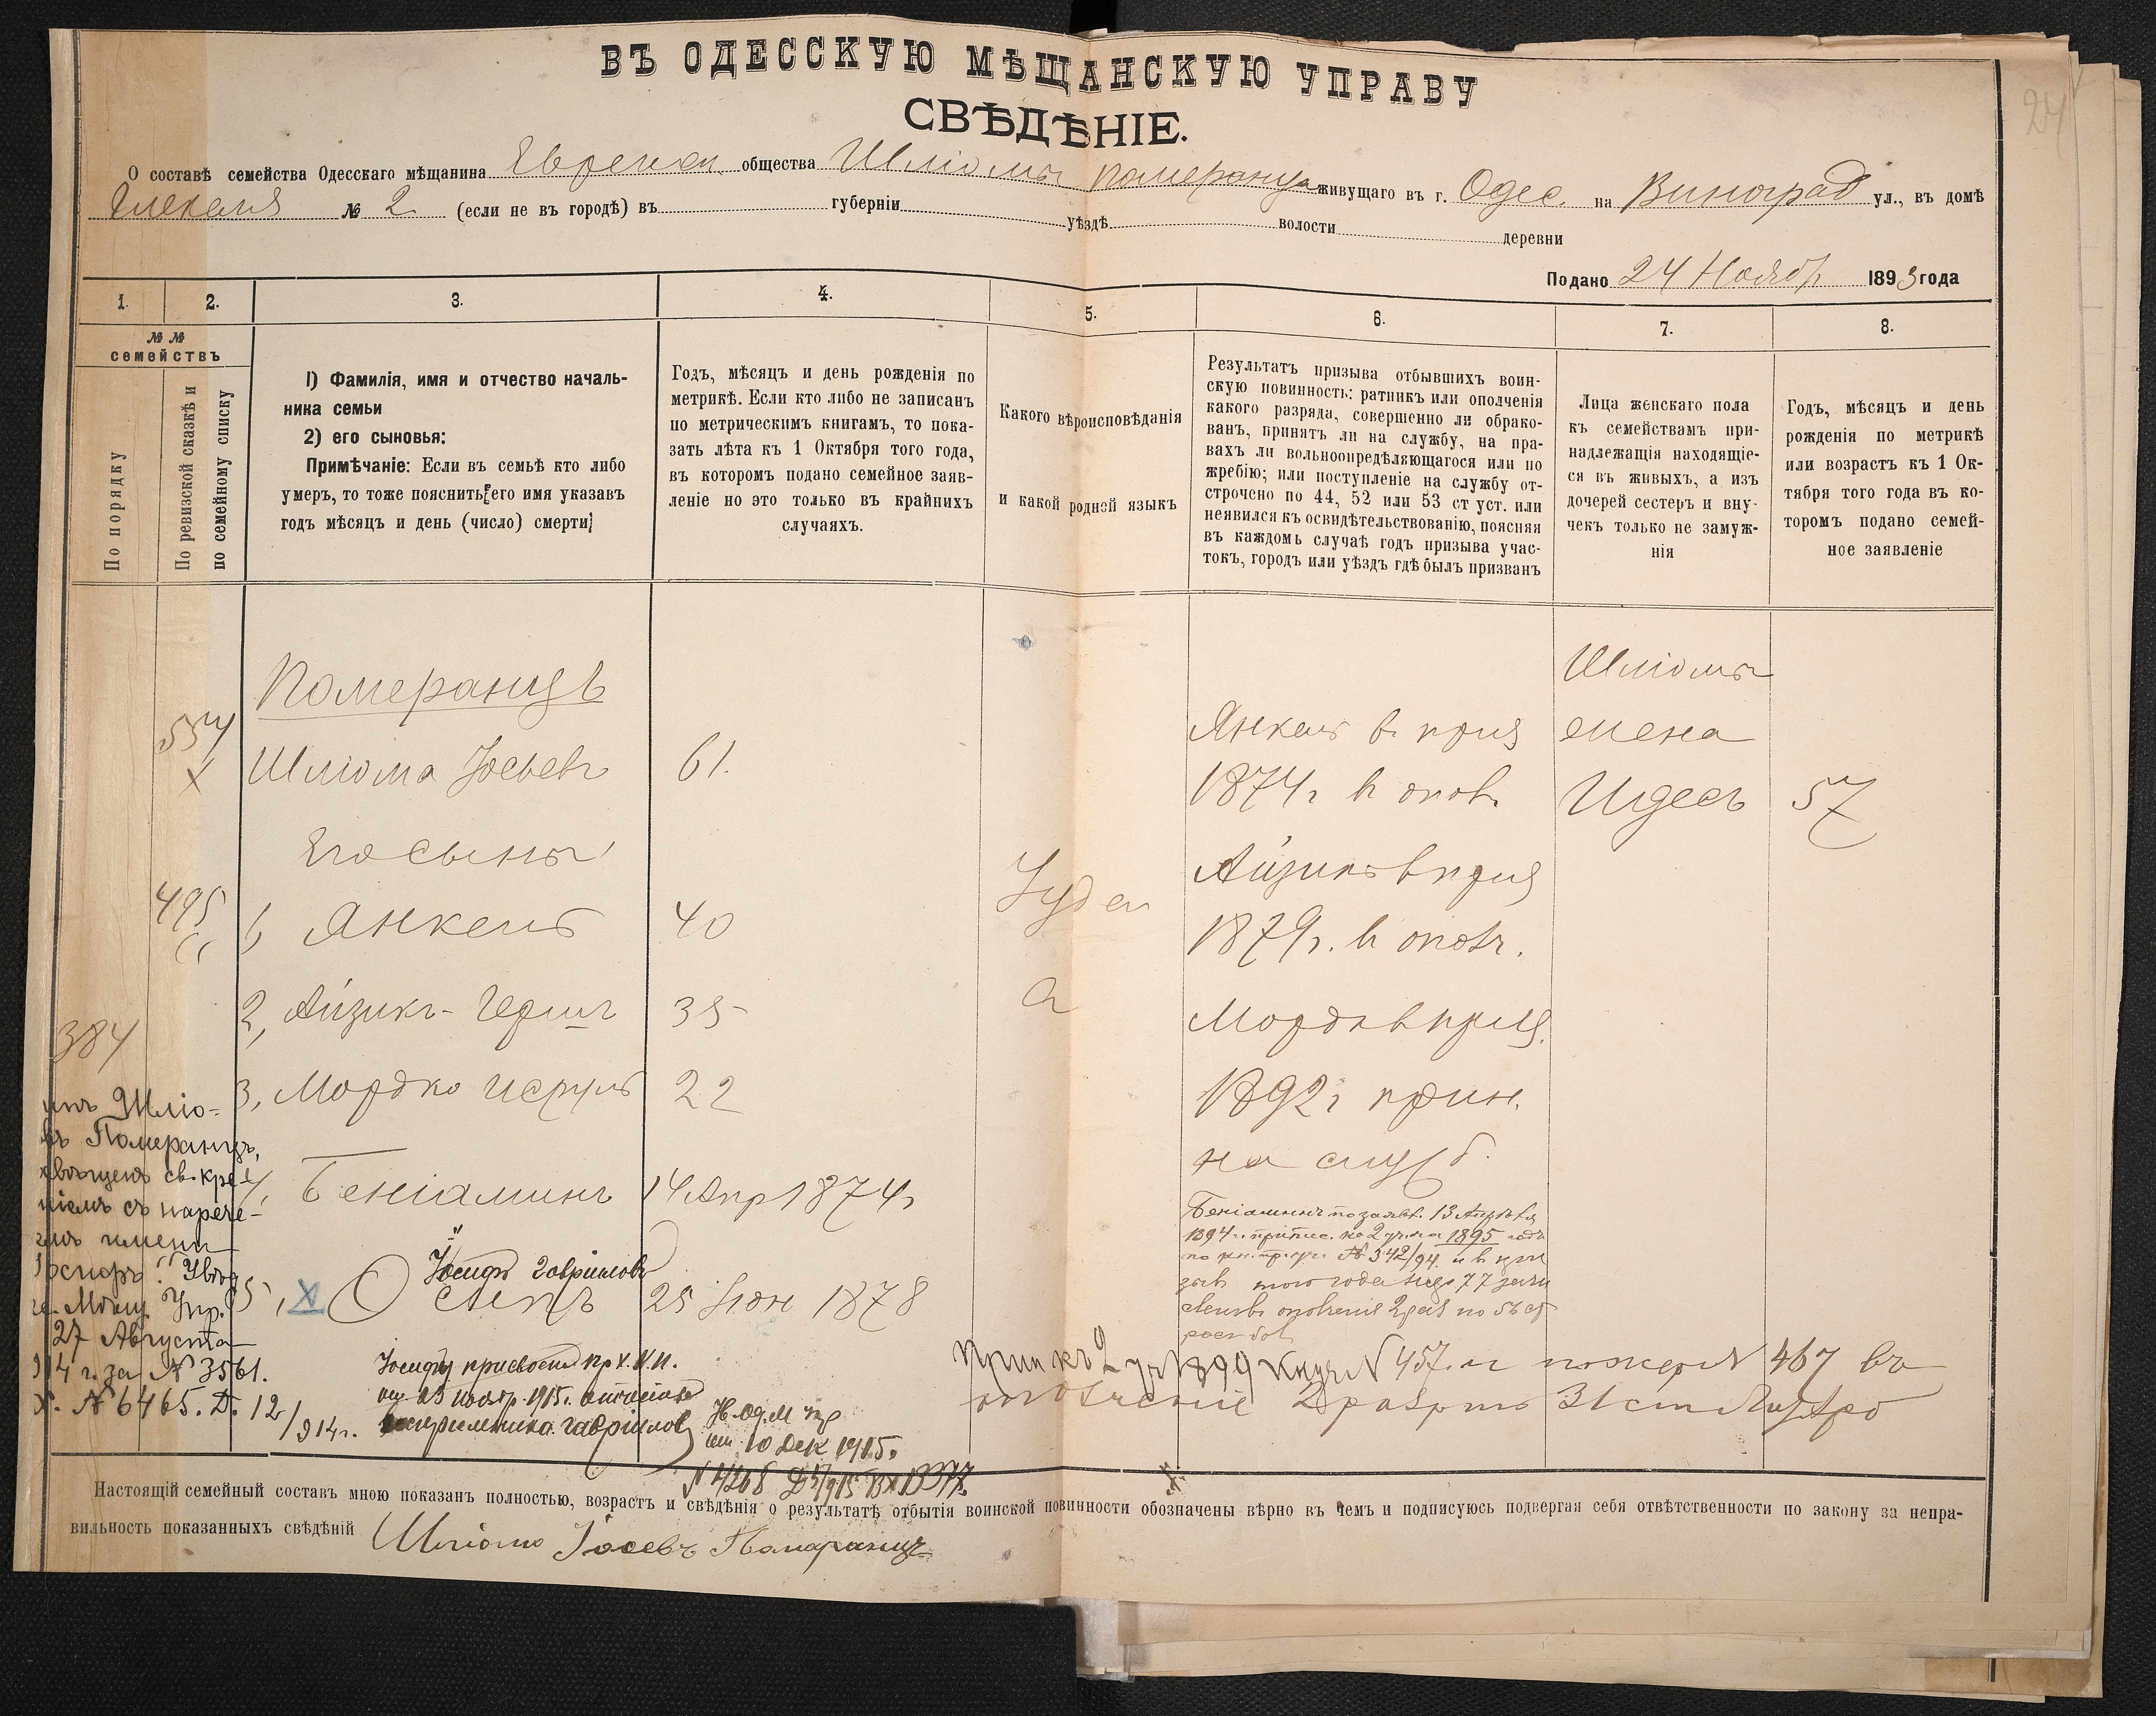 24
ВЪ ОДЕССКУЮ МѢЩАНСКУЮ УПРАВУ
СВѢДѢНІЕ.
О составѣ семейства Одесскаго мѣщанина Еврейск. общества Шліомы Померанца живущаго въ г. Одес. на Виноград ул., въ домѣ
№ 2 (если не въ городѣ) въ губерніи уѣздѣ волости деревни
Подано 24 Ноябр 1893 года
1. 2. 3. 4. 5. 6. 7. 8.
№ №
семействъ
По порядку
По ревизской сказкѣ и
по семейному списку
1) Фамилія, имя и отчество началь-
ника семьи
2) его сыновья:
Примѣчаніе: Если въ семьѣ кто либо
умеръ, то тоже пояснить его имя указавъ
годъ мѣсяцъ и день (число) смерти
Годъ, мѣсяцъ и день рожденія по
метрикѣ. Если кто либо не записанъ
по метрическимъ книгамъ, то пока-
зать лѣта къ 1 Октября того года,
въ которомъ подано семейное заяв-
леніе но это только въ крайнихъ
случаяхъ.
Какого вѣроисповѣданія
и какой родной языкъ
Результатъ призыва отбывшихъ воин-
скую повинность: ратникъ или ополченія
какого разряда, совершенно ли обрако-
ванъ, принятъ ли на службу, на пра-
вахъ ли вольноопредѣляющагося или по
жребію; или поступленіе на службу от-
строчено по 44, 52 или 53 ст уст. или
неявился къ освидѣтельствованію, поясняя
въ каждомъ случаѣ годъ призыва учас-
токъ, городъ или уѣздъ гдѣ былъ призванъ
Лица женскаго пола
къ семействамъ при-
надлежащія находящіе-
ся въ живыхъ, а изъ
дочерей сестеръ и вну-
чекъ только не замуж-
нія
Годъ, мѣсяцъ и день
рожденія по метрикѣ
или возрастъ къ 1 Ок-
тября того года въ ко-
торомъ подано семей-
ное заявленіе
Померанцъ
554
Х Шліома Іосьевъ 61.
Его сыны
495
1, Янкель 40
2, Айзикъ-Герш 35
3, Мордко 22
4, Беніаминъ 14 Апр 1874 г
Іосифъ Гавріиловъ
5, X Осипъ 25 Іюн 1878
Іудей
Янкель в приз
1874 г в опол.
Айзикъ в приз
1879 г. в опол.
Мордко в приз.
1892 г прин.
на служб.
Беніаминъ по заявл. 13 Апрѣля
1894 г припис. ко 2 уч. на 1895 годъ
№ 342/94 и в при
зыв того года 77
ополченія
Шліомы
жена
Идесъ 57
384
Шліо-
Померанцъ,
св. кре-
ніемъ съ нарече-
имени
"Іосифъ". Увѣд
Мѣщ. Упр.
27 Августа
914 г. за № 3561.
№ 6465. Д. 12/914 г.
Іосифу присвоено
23 Ноябр. 1915 г. отчество
Гавріиловъ
Од. М Упр
от 10 Дек 1915.
№ 4268
1899 № 457 и № 467 въ
ополченіе 2 разр
Настоящій семейный составъ мною показанъ полностью, возрастъ и свѣдѣнія о результатѣ отбытія воинской повинности обозначены вѣрно въ чемъ и подписуюсь подвергая себя отвѣтственности по закону за непра-
вильность показанныхъ свѣдѣній Шліомо Іосевъ Памаранцъ